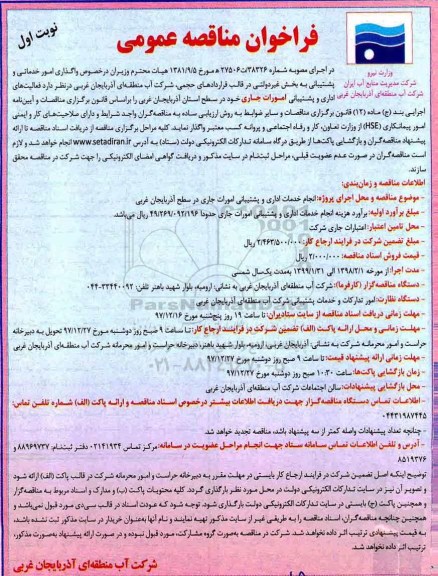 نوبت اول
فراخوان مناقصه عمومی
وزارت نیرو
شرکت مدیریت منابع آب ایران
شرکت آب منطقه‌ای آذربایجان غربی
در اجرای مصوبه شماره ۳۸۳۲۶/ت۲۷۵۰۶ه مورخ ۱۳۸۱/۹/۵ هیات محترم وزیران درخصوص واگذاری امور خدماتی و
پشتیبانی به بخش غیردولتی در قالب قراردادهای حجمی، شرکت آب منطقه‌ای آذربایجان غربی درنظر دارد فعالیت‌های
اداری و پشتیبانی امورات جاری خود در سطح استان آذربایجان غربی را براساس قانون برگزاری مناقصات و آیین‌نامه
اجرایی بند (ج) ماده (۱۲) قانون برگزاری مناقصات و سایر ضوابط به روش ارزیابی ساده به مناقصه‌گران واجد شرایط و دارای صلاحیت‌های کار و ایمنی
امور پیمانکاری (HSE) از وزارت تعاون، کار و رفاه اجتماعی و پروانه کسب معتبر واگذار نماید. کلیه مراحل برگزاری مناقصه از دریافت اسناد مناقصه تا ارائه
پیشنهاد مناقصه‌گران و بازگشایی پاکت‌ها از طریق درگاه سامانه تدارکات الکترونیکی دولت (ستاد) به آدرس www.setadiran.ir انجام خواهد شد و لازم
است مناقصه‌گران در صورت عدم عضویت قبلی، مراحل ثبت‌نام در سایت مذکور و دریافت گواهی امضای الکترونیکی را جهت شرکت در مناقصه محقق
سازند.
اطلاعات مناقصه و زمان‌بندی:
- موضوع مناقصه و محل اجرای پروژه: انجام خدمات اداری و پشتیبانی امورات جاری در سطح آذربایجان غربی
- مبلغ برآورد اولیه: برآورد هزینه انجام خدمات اداری و پشتیبانی امورات جاری حدودا ۴۹/۲۶۹/۰۹۲/۱۹۶ ریال می‌باشد.
- محل تامین اعتبار: اعتبارات جاری شرکت
- مبلغ تضمین شرکت در فرایند ارجاع کار: ۲/۴۶۳/۵۰۰/۰۰۰ ریال
- قیمت فروش اسناد مناقصه: ۲/۰۰۰/۰۰۰ ریال
- مدت اجرا از مورخه ۱۳۹۸/۲/۱ الی ۱۳۹۹/۱/۳۱ به‌مدت یک‌سال شمسی
- دستگاه مناقصه‌گزار (کارفرما): شرکت آب منطقه‌ای آذربایجان غربی به نشانی: ارومیه، بلوار شهید باهنر تلفن: ۳۳۴۴۰۰۹۲-۰۴۴
- دستگاه نظارت: امور تدارکات و خدمات پشتیبانی شرکت آب منطقه‌ای آذربایجان غربی
- مهلت زمانی دریافت اسناد مناقصه از سایت ستادیران: تا ساعت ۱۹ روز پنج‌شنبه مورخ ۹۷/۱۲/۱۶
- مهلت زمانی و محل ارائه پاکت (الف) تضمین شرکت در فرایند ارجاع کار: تا ساعت ۹ صبح روز دوشنبه مورخ ۹۷/۱۲/۲۷ تحویل به دبیرخانه
حراست و امور محرمانه شرکت به نشانی: آذربایجان غربی، ارومیه، بلوار شهید باهنر، دبیرخانه حراست و امور محرمانه شرکت آب منطقه‌ای آذربایجان غربی
- مهلت زمانی ارائه پیشنهاد قیمت: تا ساعت ۹ صبح روز دوشنبه مورخ ۹۷/۱۲/۲۷
- زمان بازگشایی پاکت‌ها: ساعت ۱۰:۳۰ صبح روز دوشنبه مورخ ۹۷/۱۲/۲۷
- محل بازگشایی پیشنهادات: سالن اجتماعات شرکت آب منطقه‌ای آذربایجان غربی
- اطلاعات تماس دستگاه مناقصه‌گزار جهت دریافت اطلاعات بیشتر درخصوص اسناد مناقصه و ارائه پاکت (الف) شماره تلفن تماس:
۰۴۴۳۱۹۸۷۴۴۵
- چنانچه تعداد پیشنهادات واصله کمتر از سه پیشنهاد باشد، مناقصه تجدید خواهد شد.
- آدرس و تلفن اطلاعات تماس سامانه ستاد جهت انجام مراحل عضویت در سامانه: مرکز تماس ۰۲۱۴۱۹۳۴ دفتر ثبت‌نام: ۸۸۹۶۹۷۳۷ و
۸۵۱۹۳۷۶
توضیح اینکه اصل تضمین شرکت در فرایند ارجاع کار بایستی در مهلت مقرر به دبیرخانه حراست و امور محرمانه شرکت در قالب پاکت (الف) ارائه شود
و تصویر آن نیز در سایت تدارکات الکترونیکی دولت در محل مورد نظر بارگذاری گردد. کلیه محتویات پاکت (ب) و مدارک و اسناد مربوط به مناقصه‌گزار
و همچنین پاکت (ج) بایستی در سایت تدارکات الکترونیکی دولت بارگذاری شود. توجه شود که عودت اسناد در قالب سی‌دی مورد قبول نمی‌باشد و
همچنین چنانچه مناقصه‌گران، اسناد مناقصه را به طریقی غیر از سایت مذکور تهیه نمایند و نام آنها به‌عنوان خریدار در سایت مذکور ثبت نشده باشد،
به قیمت پیشنهادی ترتیب اثر داده نخواهد شد. شرکت در مناقصه به‌صورت گروه مشارکت، مورد قبول نبوده و در صورت ارائه پیشنهاد به‌صورت مذکور،
ترتیب اثر داده نخواهد شد.
شرکت آب منطقه‌ای آذربایجان غربی